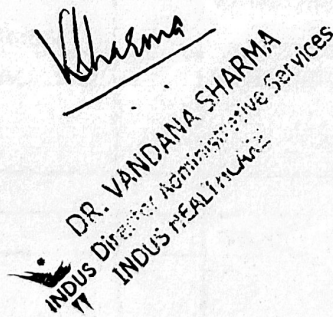 VSharma
DR. VANDANA SHARMA
Director Administrative Services
INDUS HEALTHCARE
INDUS